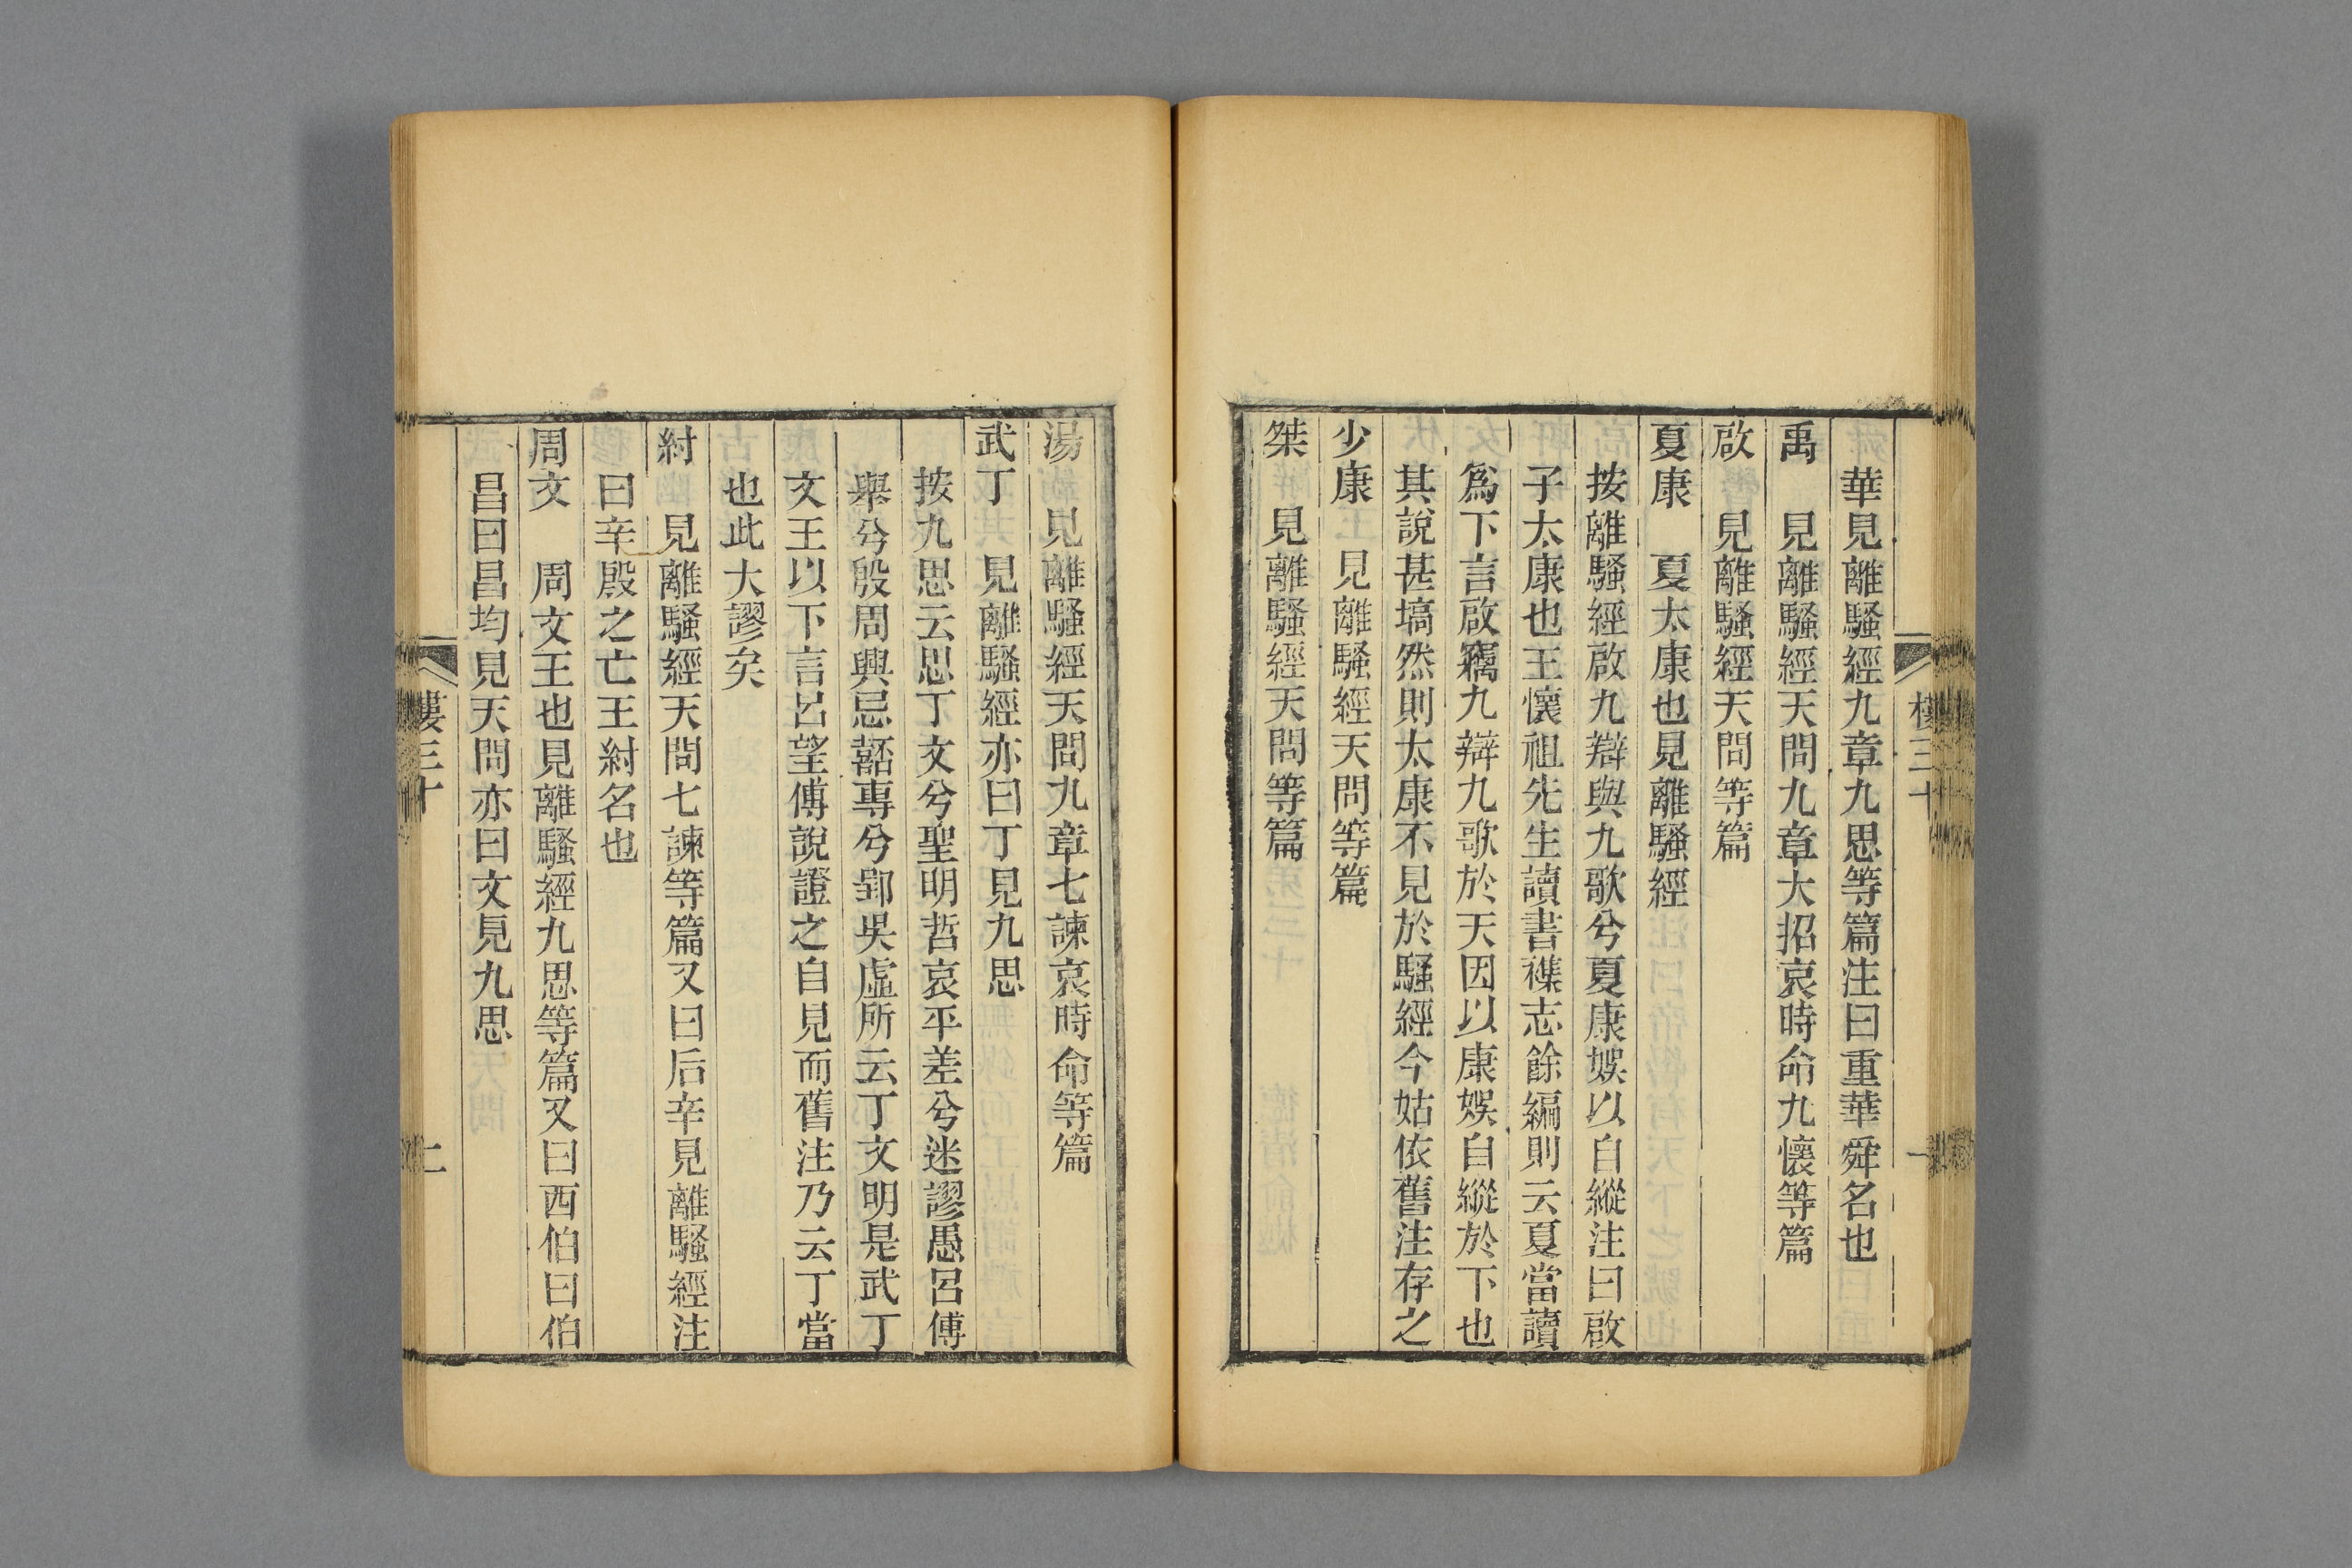 華見離騷經九章九思等篇注曰重華舜名也
禹　見離騷經天問九章大招哀時命九懷等篇
啟　見離騷經天問等篇
夏康　夏太康也見離騷經
按離騷經啟九辯與九歌兮夏康娛以自縱注曰啟
子太康也王懷祖先生讀書襍志餘編則云夏當讀
爲下言啟竊九辯九歌於天因以康娛自縱於下也
其說甚塙然則太康不見於騷經今姑依舊注存之
少康　見離騷經天問等篇
桀　見離騷經天問等篇
湯　見離騷經天問九章七諫哀時命等篇
武丁　見離騷經亦曰丁見九思
按九思云思丁文兮聖明哲哀平差兮迷謬愚呂傅
舉兮殷周興忌嚭專兮郢吳虛所云丁文明是武丁
文王以下言呂望傅說證之自見而舊注乃云丁當
也此大謬矣
紂　見離騷經天問七諫等篇又曰后辛見離騷經注
曰辛殷之亡王紂名也
周文　周文王也見離騷經九思等篇又曰西伯曰伯
昌曰昌均見天問亦曰文見九思
樓三十
二